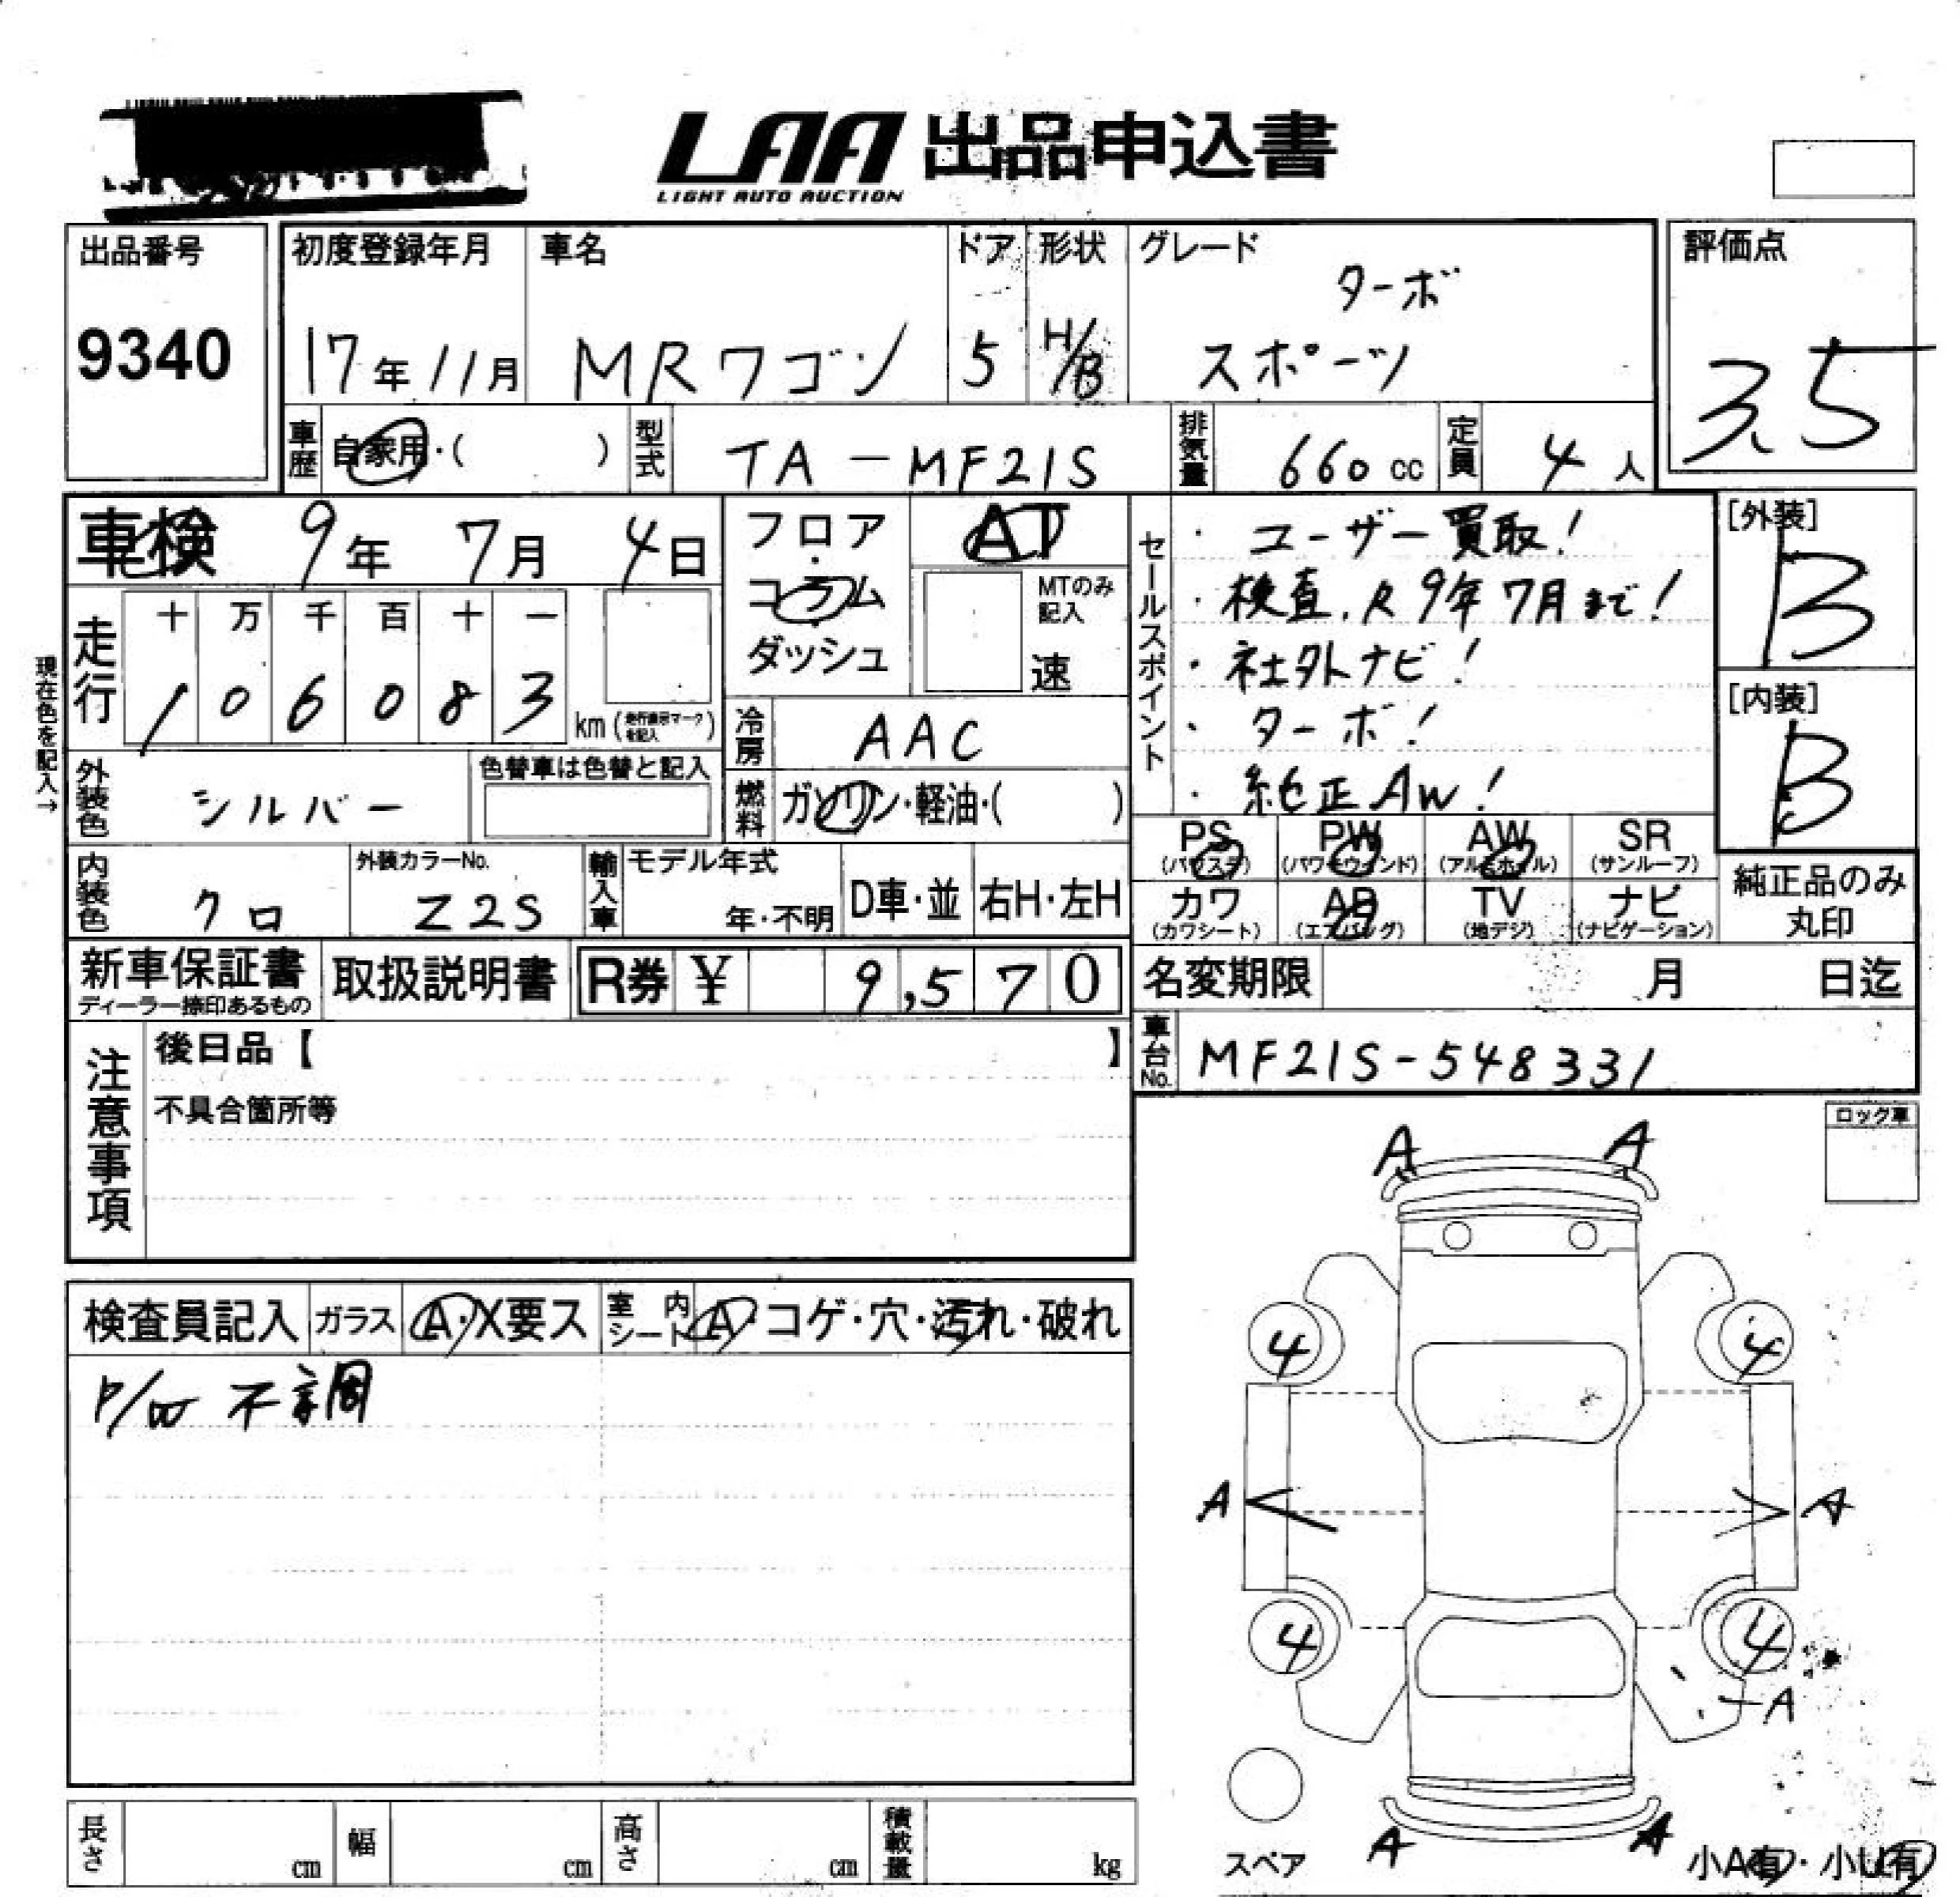 LAA 出品申込書
LIGHT AUTO AUCTION
出品番号
9340
初度登録年月
17年11月
車名
MRワゴン
ドア
5
形状
H/B
グレード
ターボ
スポーツ
評価点
3.5
車歴
自家用・( )
型式
TA-MF21S
排気量
660cc
定員
4人
車検 9年 7月 4日
現在色を記入→
走行
十 万 千 百 十 一
1 0 6 0 8 3
km(走行表示マークを記入)
フロア
・
コラム
・
ダッシュ
AT
MTのみ
記入
速
冷房
AAC
燃料
ガソリン・軽油・( )
外装色
シルバー
色替車は色替と記入
内装色
クロ
外装カラーNo.
Z2S
輸入車
モデル年式
年・不明
D車・並
右H・左H
セールスポイント
・ユーザー買取!
・検査.R9年7月まで!
・社外ナビ!
・ターボ!
・純正AW!
[外装]
B
[内装]
B
PS PW AW SR
(パワステ) (パワーウィンド) (アルミホイル) (サンルーフ)
カワ AB TV ナビ
(カワシート) (エアバッグ) (地デジ) (ナビゲーション)
純正品のみ
丸印
新車保証書
ディーラー捺印あるもの
取扱説明書
R券 ¥ 9,570
名変期限 月 日迄
車台No.
MF21S-548331
注意事項
後日品【 】
不具合箇所等
ロック車
検査員記入
ガラス
A・X要ス
室内シート
A・コゲ・穴・汚れ・破れ
P/W 不調
A A
4 4
A A
4 4
A
A A
スペア
小A有・小U有
長さ cm
幅 cm
高さ cm
積載量 kg